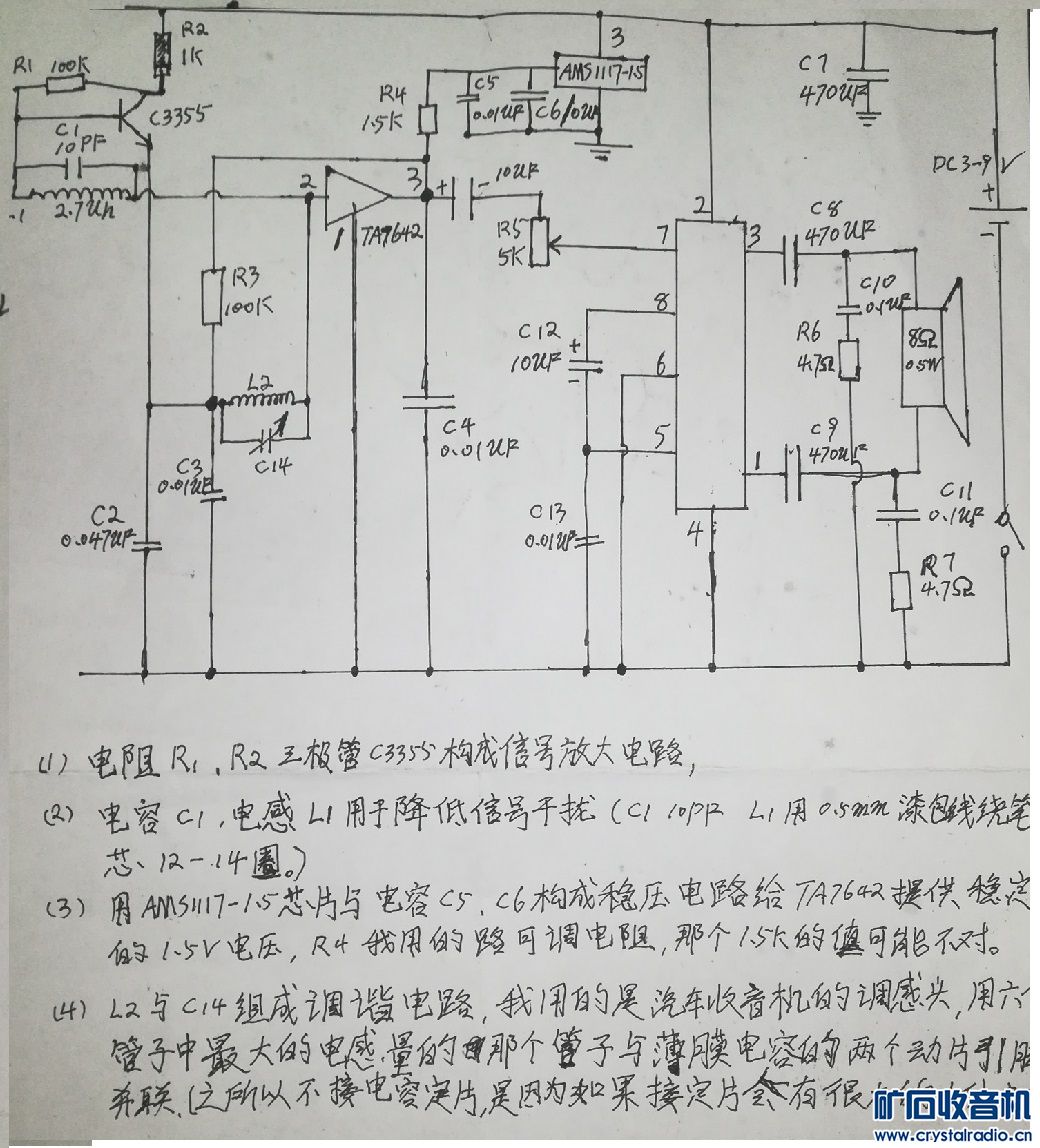 R2
1K
R1 100K
C3355
C1
10PF
2.7Uh
3
AMS1117-1.5
C5
0.01UF
C6 10UF
R4
1.5K
C7
470UF
DC3-9V
+
-
2
3
+
-
10UF
1
TA7642
R5
5K
R3
100K
L2
C14
C3
0.01UF
C2
0.047UF
C4
0.01UF
2
7
3
8
6
5
1
4
C8
470UF
C10
0.1UF
R6
4.7Ω
8Ω
0.5W
C12
10UF
+
-
C9
470UF
C13
0.01UF
C11
0.1UF
R7
4.7Ω
(1) 电阻R1、R2三极管C3355构成信号放大电路,
(2) 电容C1、电感L1用于降低信号干扰(C1 10PF L1用0.5mm漆包线绕笔
芯、12-14圈。)
(3) 用AMS1117-1.5芯片与电容C5、C6构成稳压电路给TA7642提供稳定
的1.5V电压,R4我用的路可调电阻,那个1.5K的值可能不对。
(4) L2与C14组成调谐电路,我用的是汽车收音机的调感头,用六个
管子中最大的电感量的那个管子与薄膜电容的两个动片引脚
并联.(之所以不接电容定片,是因为如果接定片会有很
矿石收音机
www.crystalradio.cn